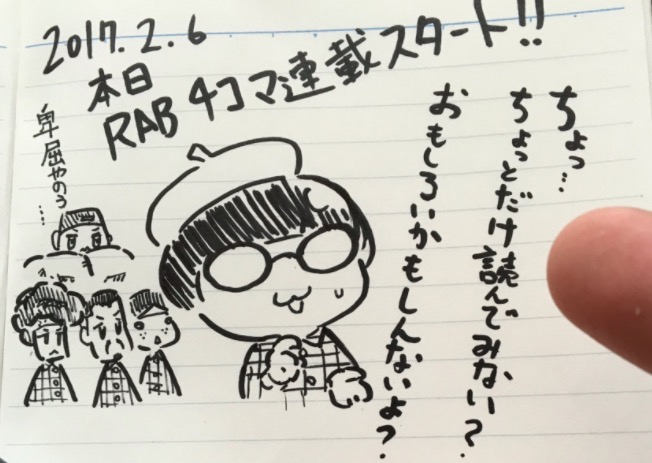 2017.2.6
本日
RAB 4コマ連載スタート!!
ちょっ…
ちょっとだけ読んでみない?
おもしろいかもしんないよ?
卑屈やのう…